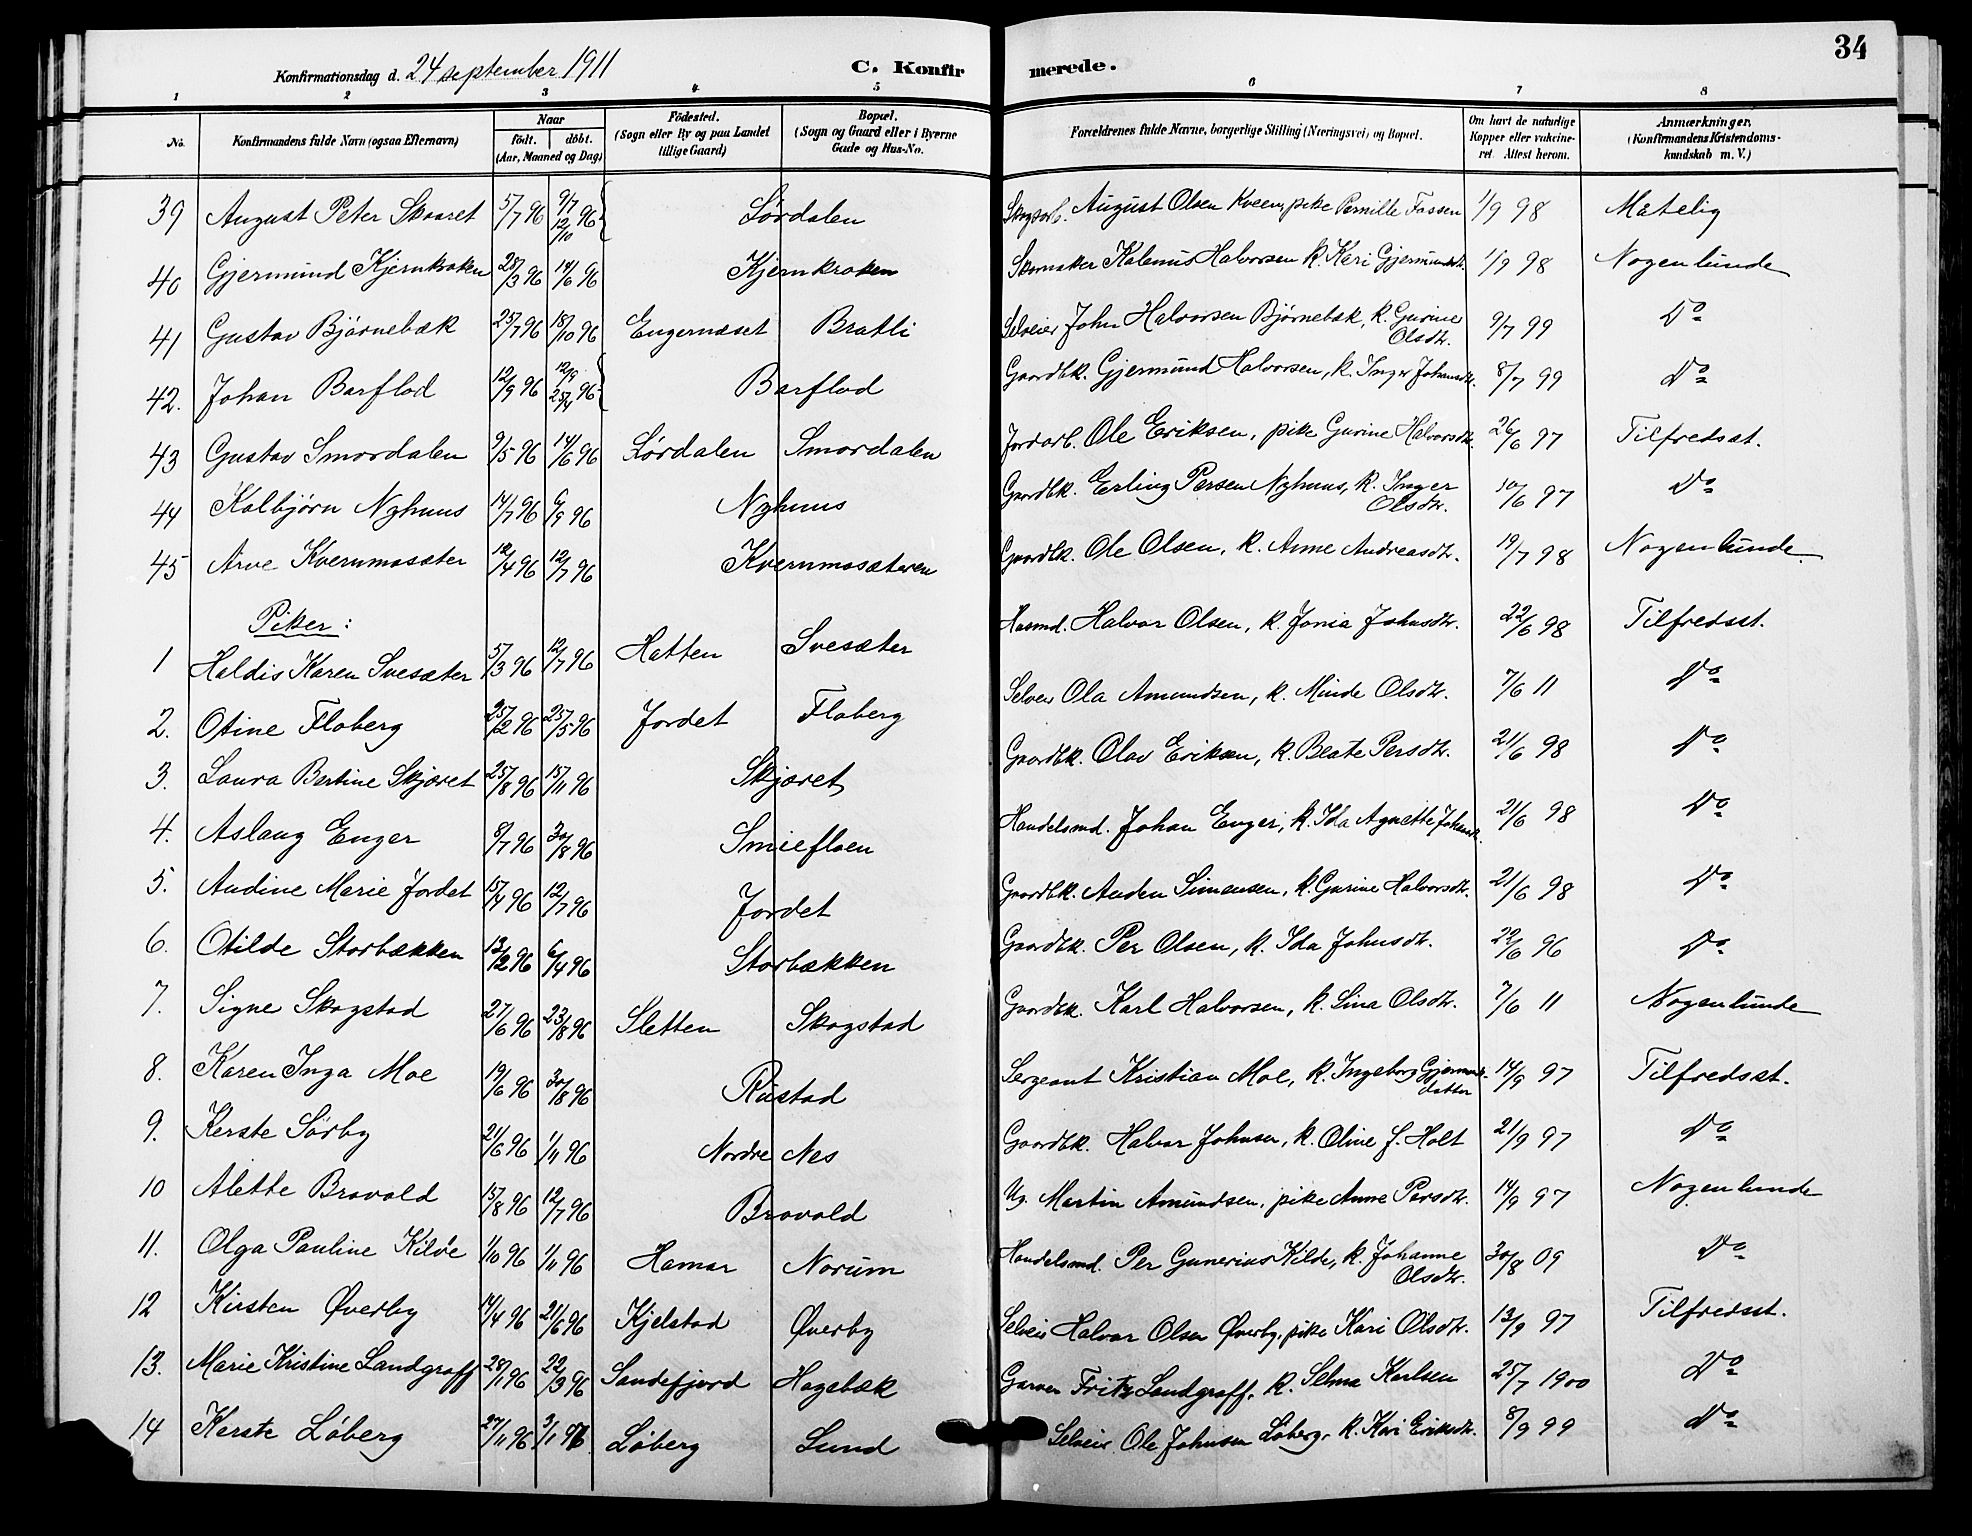 34
Konfirmationsdag d. 24 september 1911 C. Konfirmerede.
1 2 3 4 5 6 7 8
No. Konfirmandens fulde Navn (ogsaa Efternavn) Naar födt. döbt. (Aar, Maaned og Dag) Födested. (Sogn eller By og paa Landet tillige Gaard) Bopæl. (Sogn og Gaard eller i Byerne Gade og Hus-No. Forældrenes fulde Navne, borgerlige Stilling (Næringsvei) og Bopæl. Om havt de naturlige Kopper eller vakcineret. Attest herom. Anmærkninger. (Konfirmandens Kristendomskundskab m. V.)
39 August Peter Skaaret 5/7 96 9/7 12/10 96 Lørdalen Skogsarb. August Olsen Kveen, pike Pernille Fassen 1/9 98 Måtelig
40 Gjermund Kjernkroken 28/3 96 14/6 96 Kjernkroken Skomaker Kalenus Halvorsen k. Kari Gjermundsdt. 1/9 98 Nogenlunde
41 Gustav Bjørnebæk 25/7 96 18/10 96 Engernæset Bratli Selveier John Halvorsen Bjørnebæk, k. Gurine Olsdtr. 9/7 99 Do
42. Johan Barflod 12/9 96 12/9 25/4 96 Barflod Gaardbk. Gjermund Halvorsen, k. Inger Johansdtr. 8/7 99 Do
43 Gustav Smordalen 9/5 96 14/6 96 Lørdalen Smordalen Jordarb. Ole Eriksen, pike Gurine Halvorsdtr. 26/6 97 Tilfredsst.
44 Kolbjørn Nyhuus 14/7 96 6/9 96 Nyhuus Gaardbk. Erling Persen Nyhuus, k. Inger Olsdtr. 10/6 97 Do
45 Arve Kvernmosæter 12/4 96 12/7 96 Kvernmosæteren Gaardbk. Ole Olsen, k. Anne Andreasdtr. 19/7 98 Nogenlunde
Piker:
1 Haldis Karen Svesæter 5/3 96 12/7 96 Hatten Svesæter Husmd. Halvor Olsen, k. Jonia Johnsdtr. 22/6 98 Tilfredsst.
2. Otine Floberg 25/2 96 25/5 96 Jordet Floberg Selveier Ola Amundsen, k. Minde Olsdtr. 7/6 11 Do
3. Laura Bertine Skjæret 25/8 96 15/11 96 Skjæret Gaardbk. Olav Eriksen, k. Beate Persdtr. 21/6 98 Do
4. Aslaug Enger 8/7 96 30/8 96 Smiefloen Handelsmd. Johan Enger, k. Ida Agnethe Johansdt. 21/6 98 Do
5. Audine Marie Jordet 15/4 96 12/7 96 Jordet Gaardbk. Auden Simensen, k. Gurine Halvorsdtr. 21/6 98 Do
6. Otilde Storbækken 13/2 96 6/4 96 Storbækken Gaardbk. Per Olsen, k. Ida Johnsdtr. 22/6 96 Do
7. Signe Skogstad 27/6 96 23/8 96 Sletten Skogstad Gaardbk. Karl Halvorsen, k. Lina Olsdtr. 7/6 11 Nogenlunde
8. Karen Inga Moe 19/6 96 30/8 96 Rustad Sergeant Kristian Moe, k. Ingeborg Gjermundsdatter 14/9 97 Tilfredsst.
9. Kerste Sørby 21/6 96 1/11 96 Nordre Nes Gaardbk. Halvor Johnsen, k. Oline f. Holt 21/9 97 Do
10 Alette Bravold 15/8 96 12/7 96 Bravold Ug. Martin Amundsen, pike Anne Persdtr. 14/9 97 Nogenlunde
11. Olga Pauline Kilde 1/10 96 1/11 96 Hamar Norum Handelsmd. Per Gunerius Kilde, k. Johanne Olsdtr. 30/8 09 Do
12 Kirsten Øverby 14/4 96 21/6 96 Kjelstad Øverby Selveier Halvor Olsen Øverby, pike Kari Olsdtr. 13/9 97 Tilfredsst.
13. Marie Kristine Landgraff 28/1 96 22/3 96 Sandefjord Hagebæk Garver Fritz Landgraff, k. Selma Karlsen 25/7 1900 Do
14 Kerste Løberg 27/11 96 3/1 97 Løberg Lund Selveier Ole Johnsen Løberg, k. Kari Eriksdtr. 8/9 99 Do